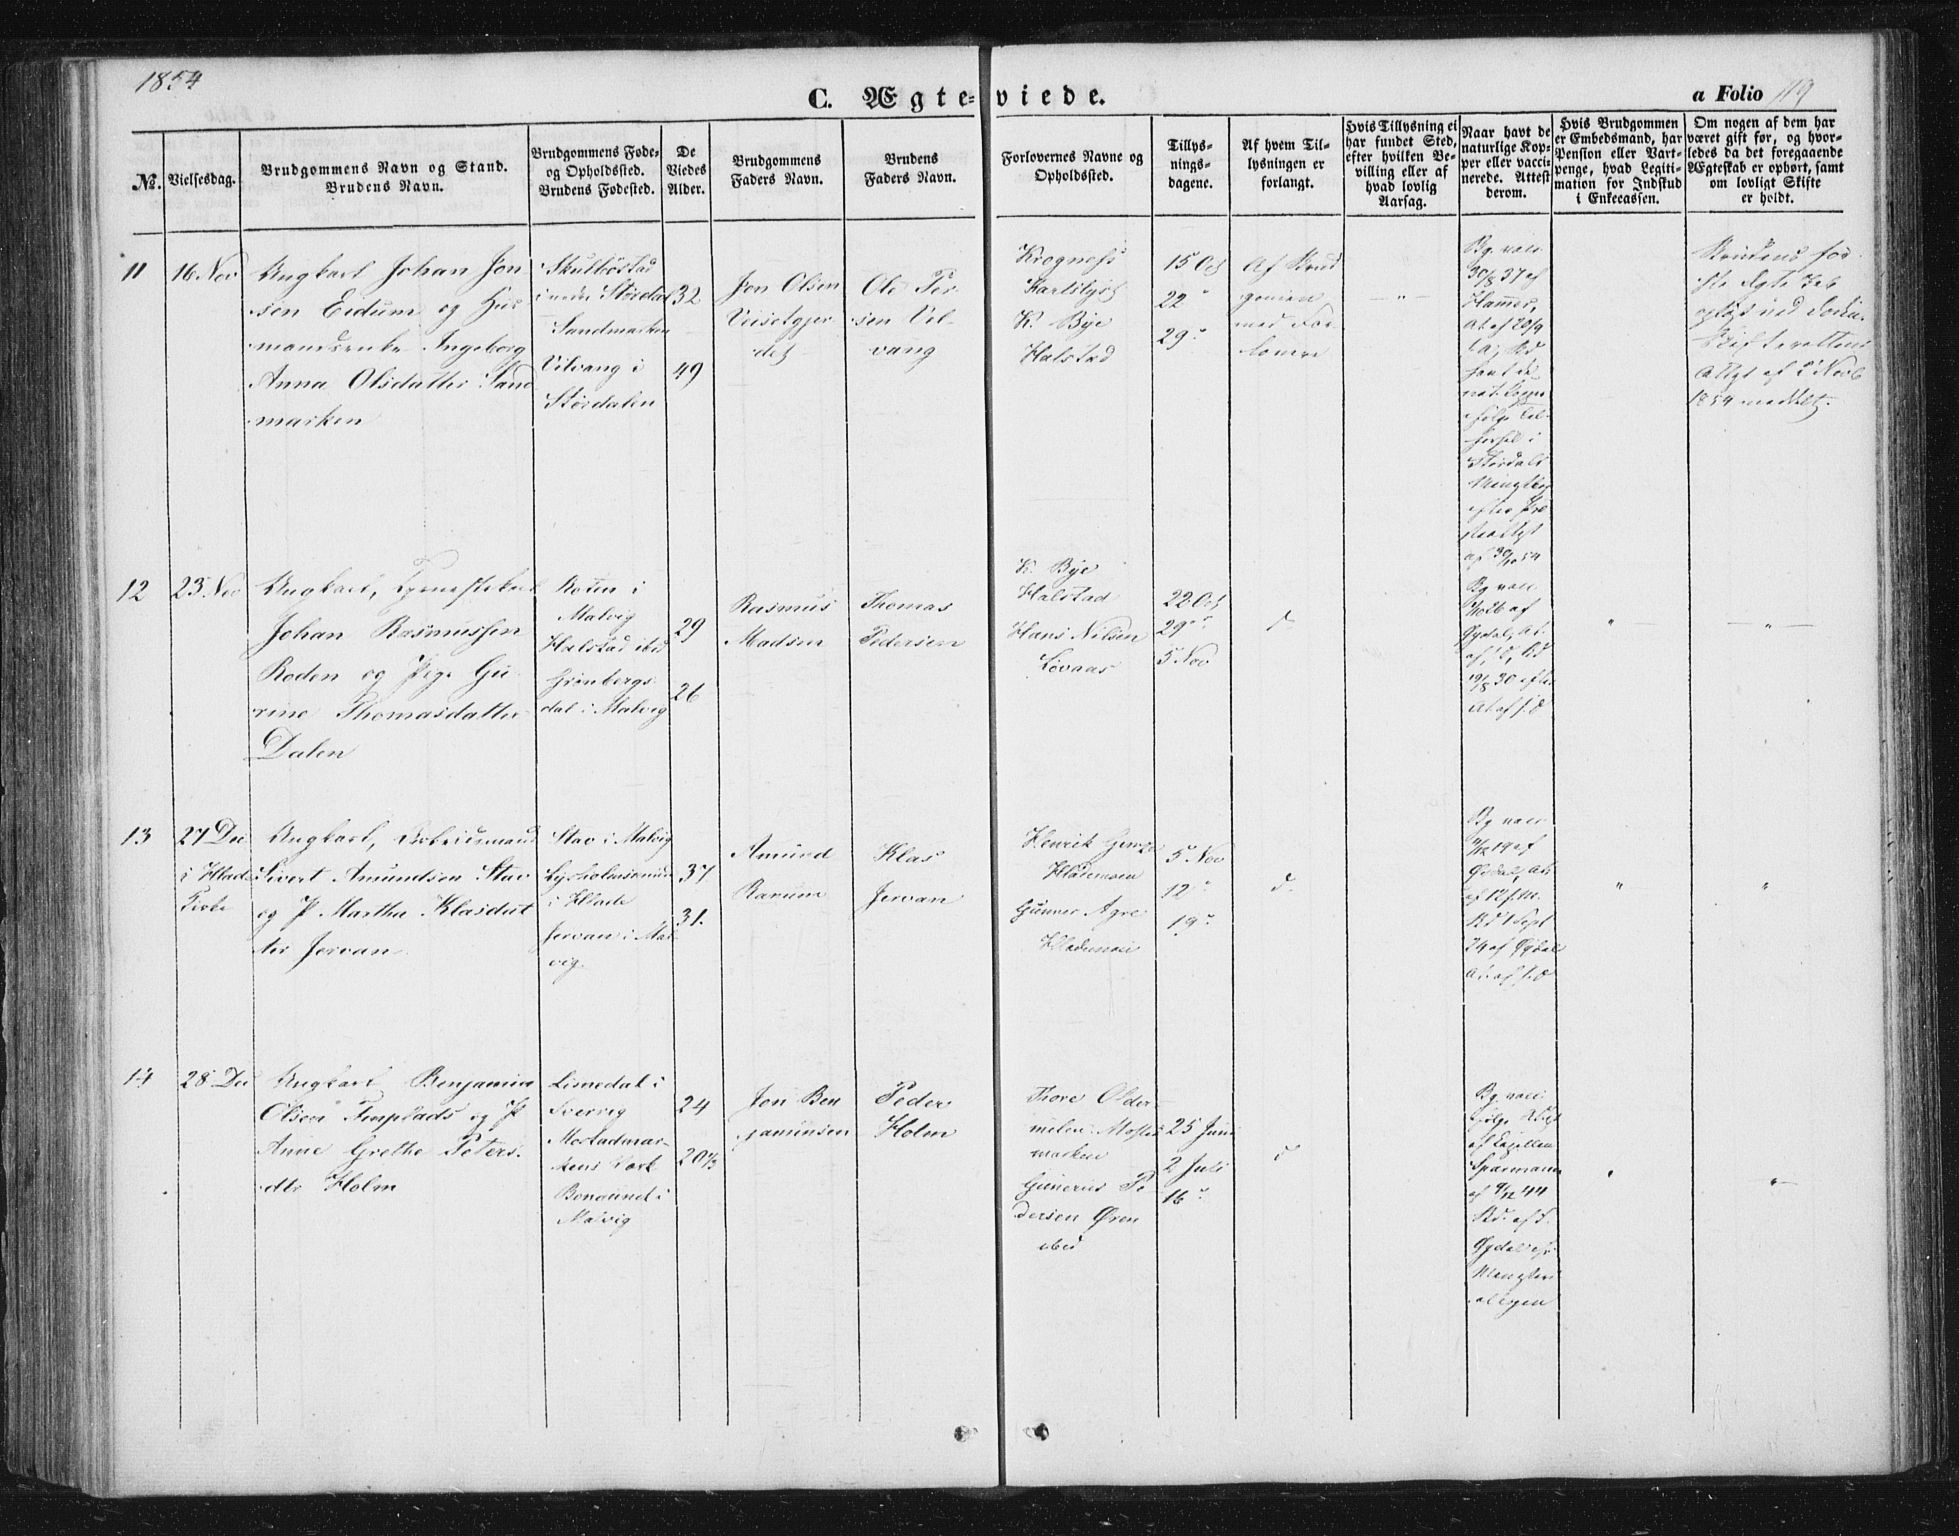 1854
C. Ægteviede.
a Folio 119
№.
Vielsesdag.
Brudgommens Navn og Stand.
Brudens Navn.
Brudgommens Føde-
og Opholdssted.
Brudens Fødested.
De
Viedes
Alder.
Brudgommens
Faders Navn.
Brudens
Faders Navn.
Forlovernes Navne og
Opholdssted.
Tillys-
nings-
dagene.
Af hvem Til-
lysningen er
forlangt.
Hvis Tillysning ei
har fundet Sted,
efter hvilken Be-
villing eller af
hvad lovlig
Aarsag.
Naar havt de
naturlige Kop-
per eller vacci-
nerede. Attest
derom.
Hvis Brudgommen
er Embedsmand, har
Pension eller Vart-
penge, hvad Legiti-
mation for Indskud
i Enkecassen.
Om nogen af dem har
været gift før, og hvor-
ledes da det foregaaende
Ægteskab er ophørt, samt
om lovligt Skifte
er holdt.
11
16 Nov
Ungkarl Johan Jon
sen Eidum og Huus
mandsenke Ingeborg
Anna Olsdatter Sand
marken
i nedre Størdal
Sandmarken
Vilvang i
Størdalen
32
49
Jon Olsen
Ole Per
sen Vel-
vang
Krognæss
Karlslyst
K. Bye
Halstad
15 Oct
22 "
29 "
Af Brud
gommen
med For
lovere
"
Bg. vacc
30/8 37 af
Hammer,
At af 20/9
Størdals
af 30/10 54
Brudens før
ste Ægteskab
1854 meddelt.
12
23 Nov
Ungkarl,
Johan Rasmussen
Roden og Pige Gu
rine Thomasdatter
Dalen
Roten i
Malvig
Halstad ibid
Grønbergs
dal i Malvig
29
26
Rasmus
Madsen
Thomas
Pedersen
K. Bye
Halstad
Hans Nilsen
Løvaas
22 Oct
29 "
5 Nov
d
Bg vacc
Øgdal, At.
19/8 30 efter
At af s. d
"
"
13
27 Dec
i Hlade
Kirke
Ungkarl, Arbeidsmand
Sivert Amundsen Stav
og P. Martha Klasdat
ter Jervan
Stav i Malvig
i Hlade
Jervan i Mal
vig.
37
31.
Amund
Rarum
Klas
Jervan
Henrik
Hlademoen
Gunner Agre
Hlademoen
5 Nov
12 "
19 "
d.
Bg vacc
Øgdal, At.
af 12 f. M.
Bd 1 Sept
24 af Øgdal
At. af s. d
"
"
14
28 Dec
Ungkarl Benjamin
Olsen Troplads og P
Anne Grethe Peters.
dtr Holm
Limedal i
Sverrig
Mostadmar-
kens Værk
i
Malvig
24
20 1/3
Jon Ben
jaminsen
Peder
Holm
Tore Older
melen Mosta
marken
Gunerius Pe
dersen Øren
ibid
25 Juni
2 Juli
16 "
d
Bg. vacc
af Capellan
Sparmann
af 9/12 44
Bd. af S.
"
"